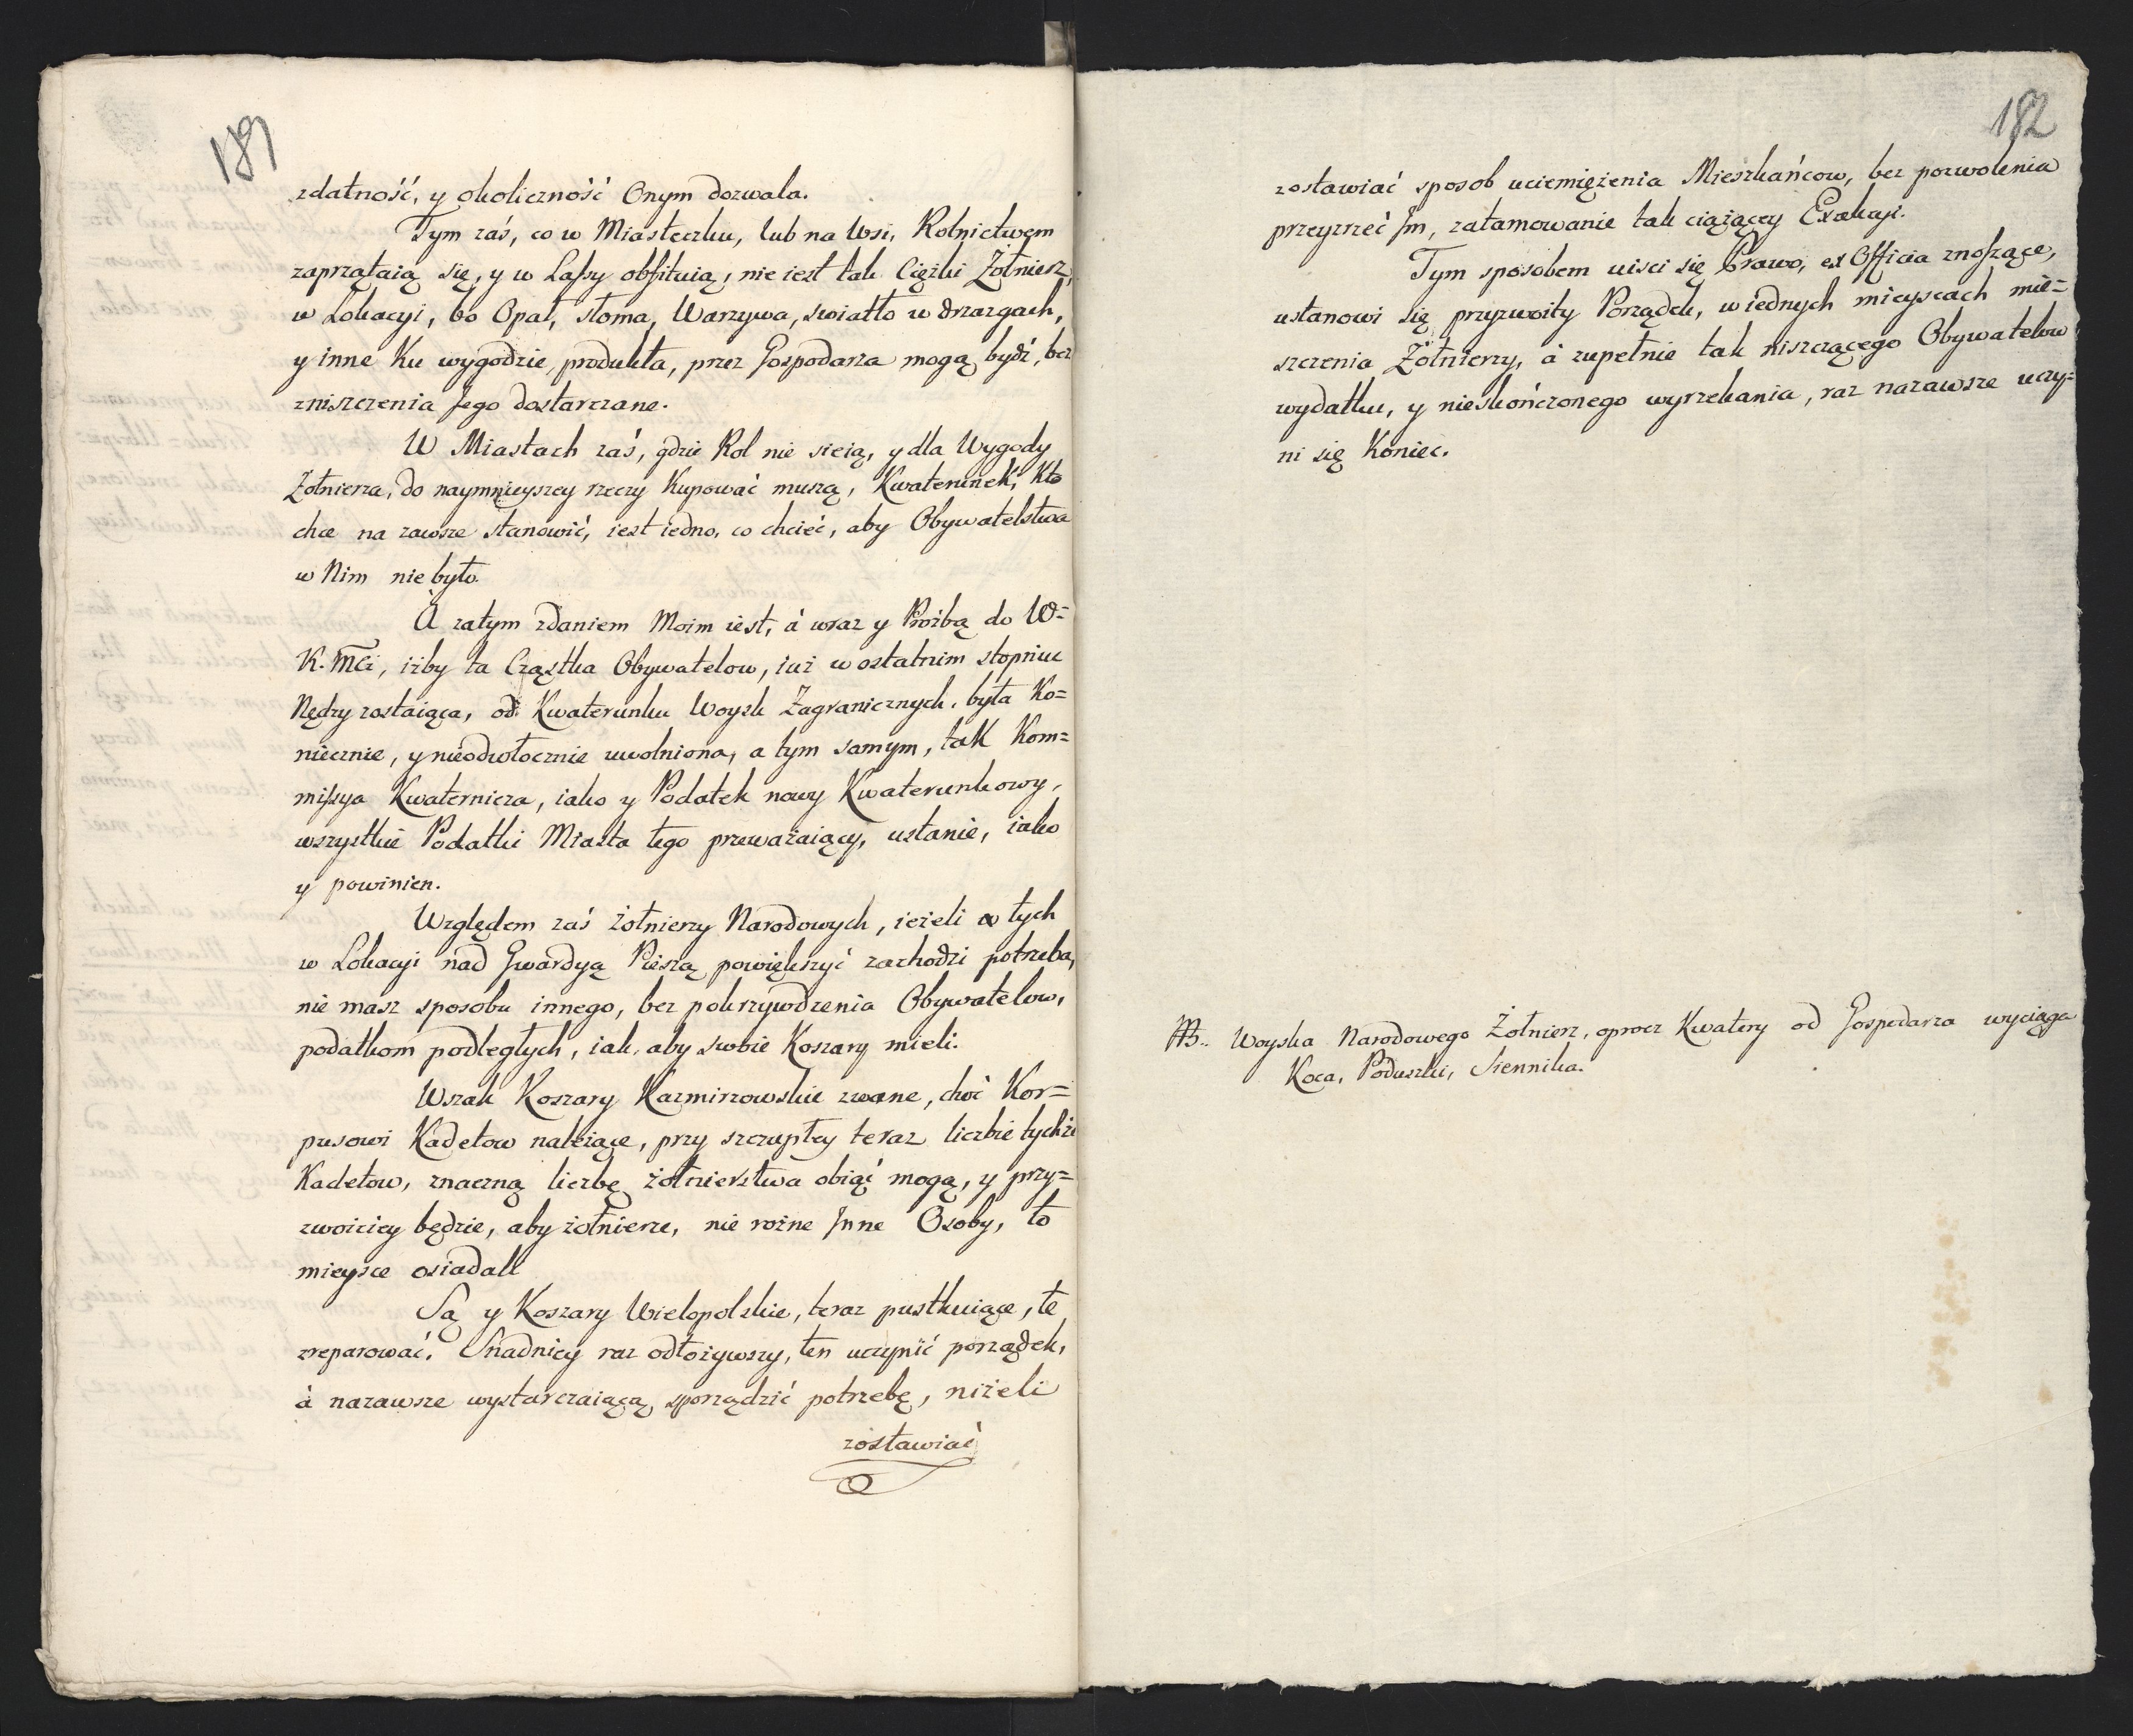 181
zdatność, y okoliczność Onym dozwala.
Tym zaś, co w Miasteczku, lub na Wsi, Rolnictwem
zaprzątaią się, y w Lassy obfituią, nie iest tak Ciężki Żołnierz,
w Lokacyi, bo Opał, słoma, Warzywa, swiatło w drzazgach,
y inne Ku wygodzie, produkta, przez Gospodarza mogą bydź, bez
zniszczenia Jego dostarczane.
W Miastach zaś, gdzie Rol nie sieią, y dla Wygody
Żołnierza, do naymnieyszey rzeczy Kupować muszą, Kwaterunek, Kto
chce na zawsze stanowić, iest iedno, co chcieć, aby Obywatelstwa
w Nim nie było.
A zatym zdaniem Moim iest, á wraz y Prożbą do W=
K. Mci, iżby ta Cząstka Obywatelow, iuż w ostatnim stopniu
Nędzy zostaiąca, od Kwaterunku Woysk Zagranicznych, była Ko=
niecznie, y nieodwłocznie uwolniona, a tym samym, tak Kom=
missya Kwaternicza, iako y Podatek nowy Kwaterunkowy,
wszystkie Podatki Miasta tego przeważaiący, ustanie, iako
y powinien.
Względem zaś żołnierzy Narodowych, ieżeli tych
w Lokacyi nad Gwardyą Pieszą powiększyć zachodzi potrzeba,
nie masz sposobu innego, bez pokrzywdzenia Obywatelow,
podatkom podległych, iak, aby swoie Koszary mieli.
Wszak Koszary Kazmirzowskie zwane, choć Kor=
pusowi Kadetow należące, przy szczupłey teraz liczbie tychże
Kadetow, znaczną liczbę żołnierstwa obiąć mogą, y przy=
zwoiciey będzie, aby żołnierze, nie rożne Jnne Osoby, to
mieysce osiadali
Są y Koszary Wielopolskie, teraz pustkuiące, te
zreparować. Snadniey raz odłożywszy, ten uczynić porządek,
á nazawsze wystarczaiącą sporządzić potrzebę, niżeli
zostawiać
182
zostawiać sposob uciemiężenia Mieszkańcow, bez pozwolenia
przeyrzeć Jm, zatamowanie tak ciążącey Exakcyi.
Tym sposobem uisci się Prawo, ex Officia znoszące,
ustanowi się przyzwoity Porządek, w iednych mieyscach mie=
szczenia Żołnierzy, á zupełnie tak niszczącego Obywatelow
wydatku, y nieskończonego wyrzekania, raz nazawsze uczy=
ni się Koniec.
NB.. Woyska Narodowego Żołnierz, oprocz Kwatery od Gospodarza wyciąga
Koca, Poduszki, Siennika.